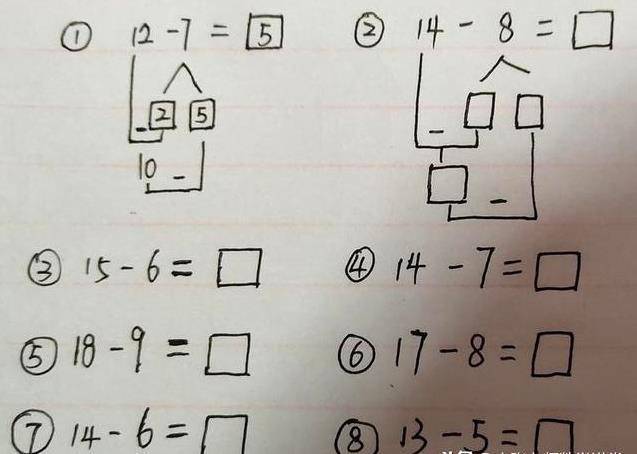 ① 12 - 7 = 5 ② 14 - 8 = □
- 2 5 - □ □
10 - □ -
③ 15 - 6 = □ ④ 14 - 7 = □
⑤ 18 - 9 = □ ⑥ 17 - 8 = □
⑦ 14 - 6 = □ ⑧ 13 - 5 = □